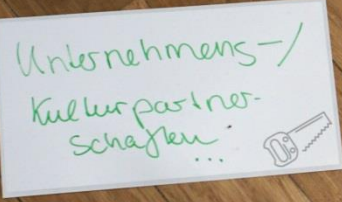 Unternehmens-/
Kulturpartner-
schaften...